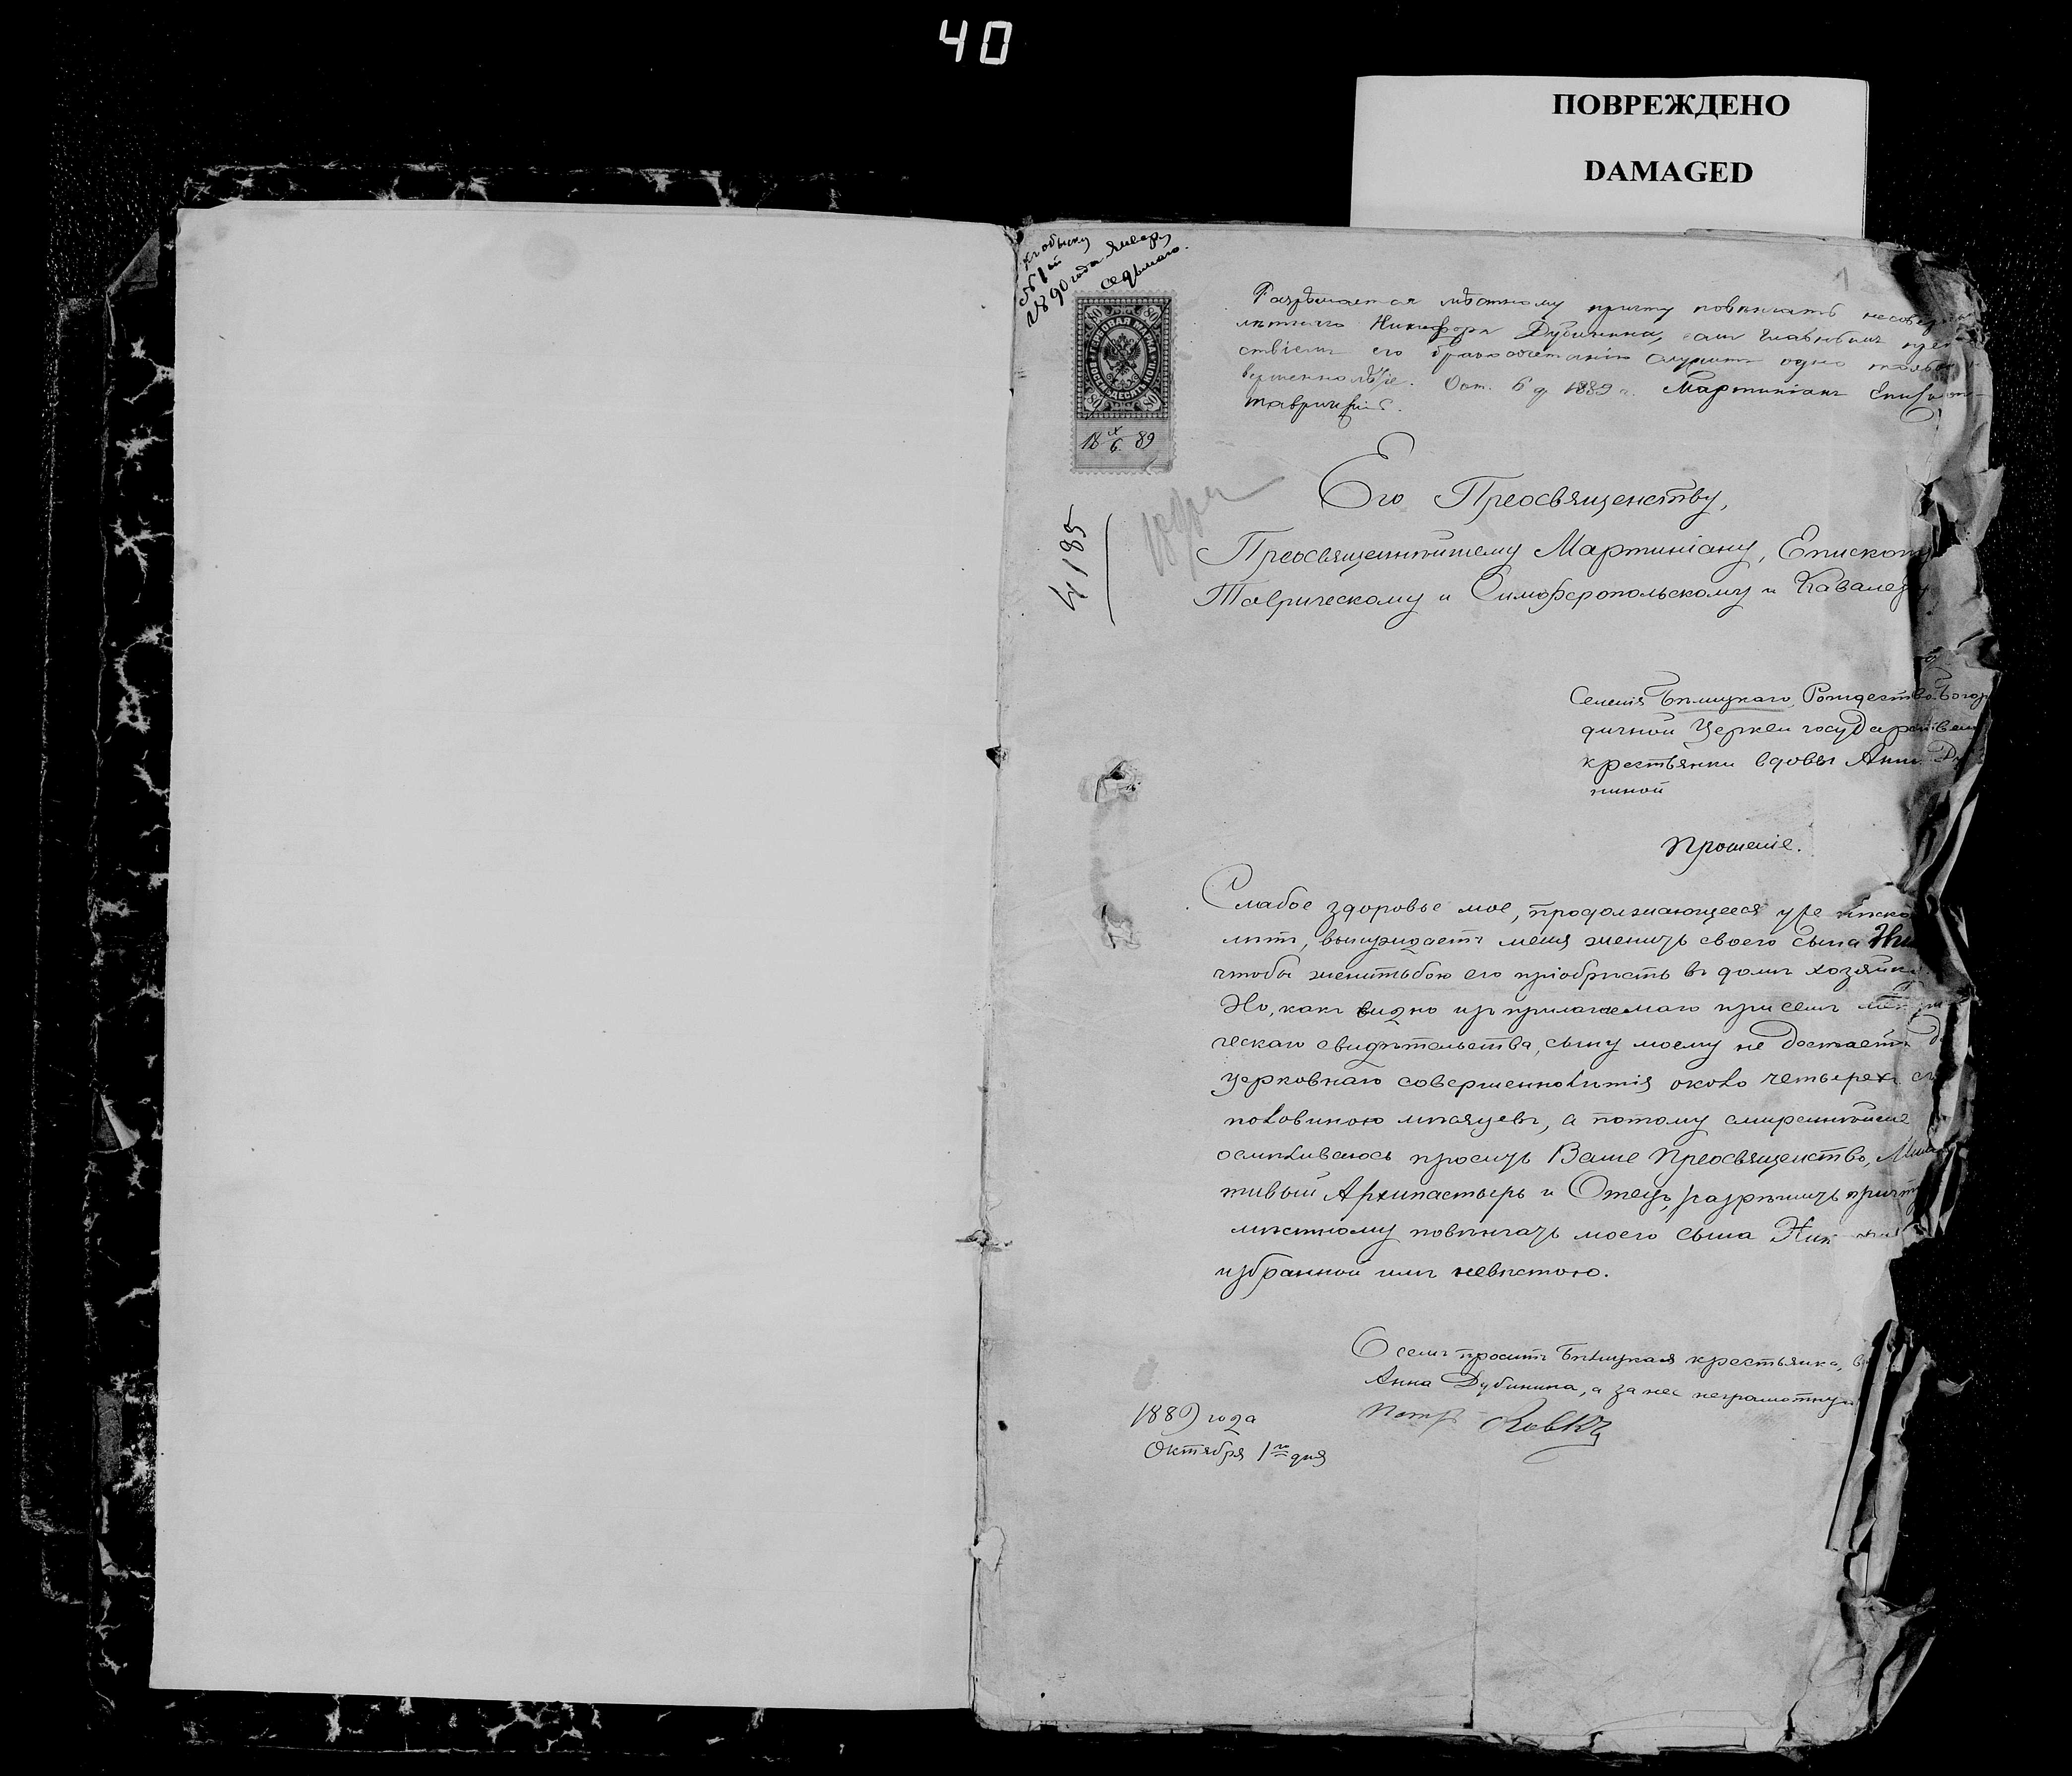 40
ПОВРЕЖДЕНО
DAMAGED
1
къ обыску
№ 1й
1890 года января
седьмаго.
Разрѣшается мѣстному причту повѣнчать несовер
лѣтняго Никифора Дубинина, если главнымъ пре
ствіемъ его бракосочетанію служитъ одно только
вершеннолѣтіе. Окт. 6 д. 1889 г. Мартиніанъ Епископъ
Таврическій.
ГЕРБОВАЯ МАРКА
ВОСЕМЬДЕСЯТЪ КОПѢЕКЪ
80 80
80 80
18 X/6 89
4185
Его Преосвященству,
Преосвященнѣйшему Мартиніану, Епископу
Таврическому и Симферопольскому и Кавалеру
Селенія Бѣлицкаго, Рождество-Богоро
дичной Церкви государствен
крестьянки вдовы Анны Ду
ниной
Прошеніе.
Слабое здоровье мое, продолжающееся уже нѣско
лѣтъ, вынуждаетъ меня женить своего сына Ни
чтобы женитьбою его пріобрѣсть въ домъ хозяйку
Но, какъ видно изъ прилагаемаго при семъ метри
ческаго свидѣтельства, сыну моему не достаетъ д
церковнаго совершеннолѣтія около четырехъ съ
половиною мѣсяцевъ, а потому смиреннѣйше
осмѣливаюсь просить Ваше Преосвященство, Мило
тивый Архипастырь и Отецъ, разрѣшить причту
мѣстному повѣнчать моего сына Ник
избранной имъ невѣстою.
О семъ проситъ Бѣлицкая крестьянка, в
Анна Дубинина, а за нее неграмотную
Петръ Ковк
1889 года
Октября 1го дня